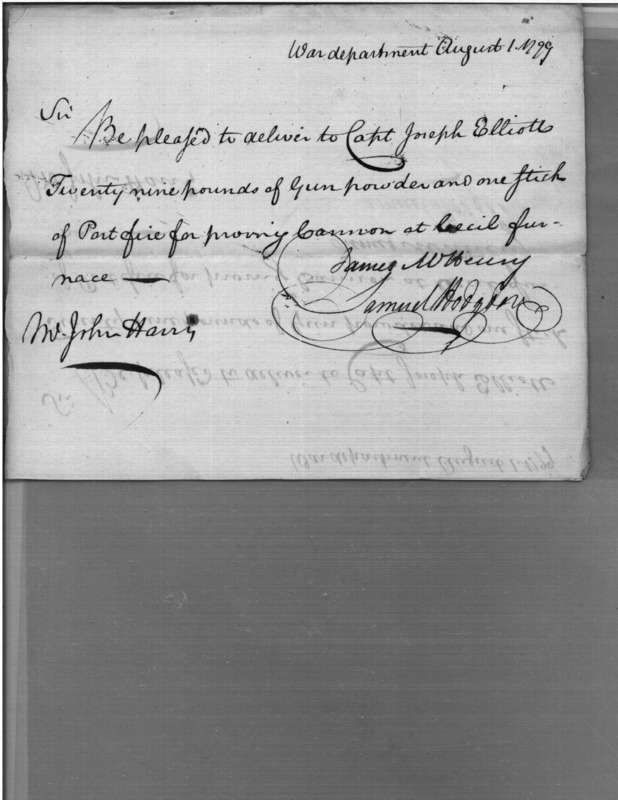 War department August 1. 1799
Sir
Be pleas'd to deliver to Capt Joseph Elliott
Twenty nine pounds of Gun powder and one Stick
of Port fire for proving Cannon at Cecil fur-
nace —
James McHenry
Samuel Hodgdon
Mr John Harris